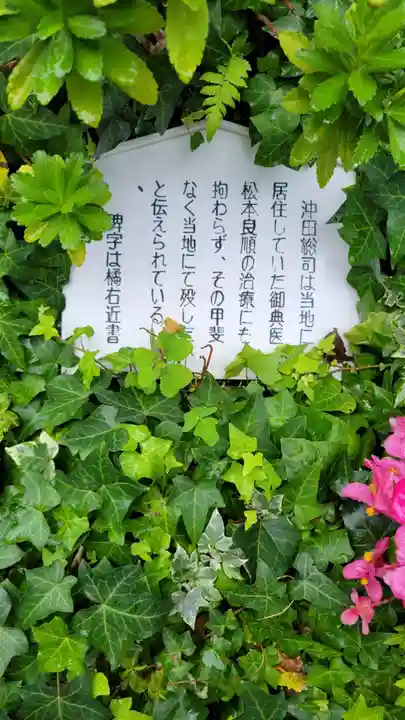 沖田総司は当地に
居住していた御典医
松本良順の治療にも
拘わらず、その甲斐
なく当地にて歿し
と伝えられている
碑字は橘右近書